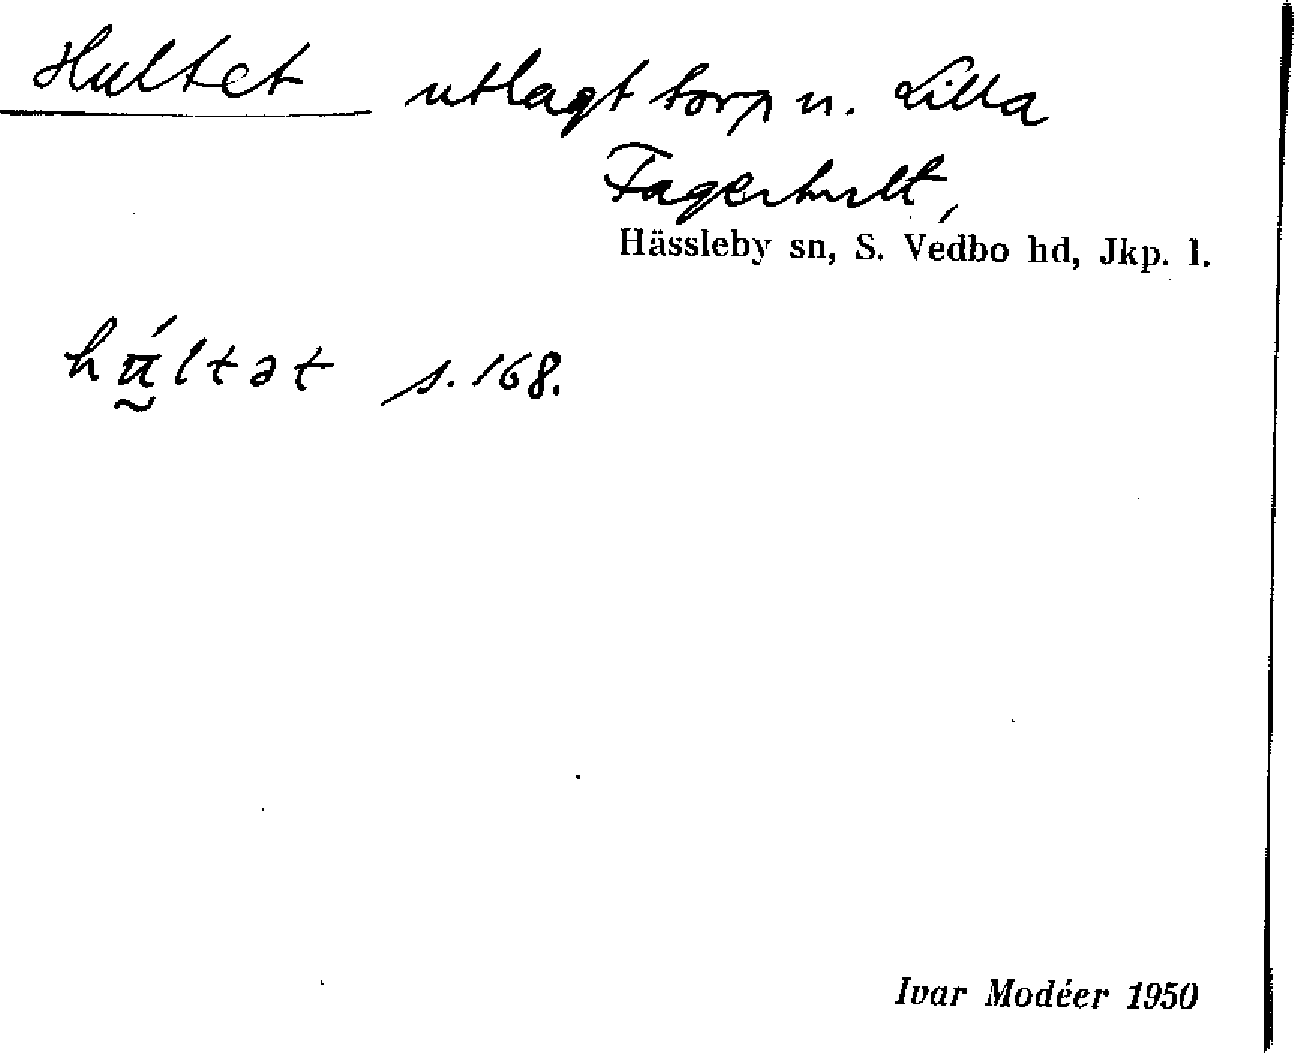 Hultet utlagt torp u. Lilla
Fagerhult,
Hässleby sn, S. Vedbo hd, Jkp. l.
hṵ́ltət s. 168.
Ivar Modéer 1950